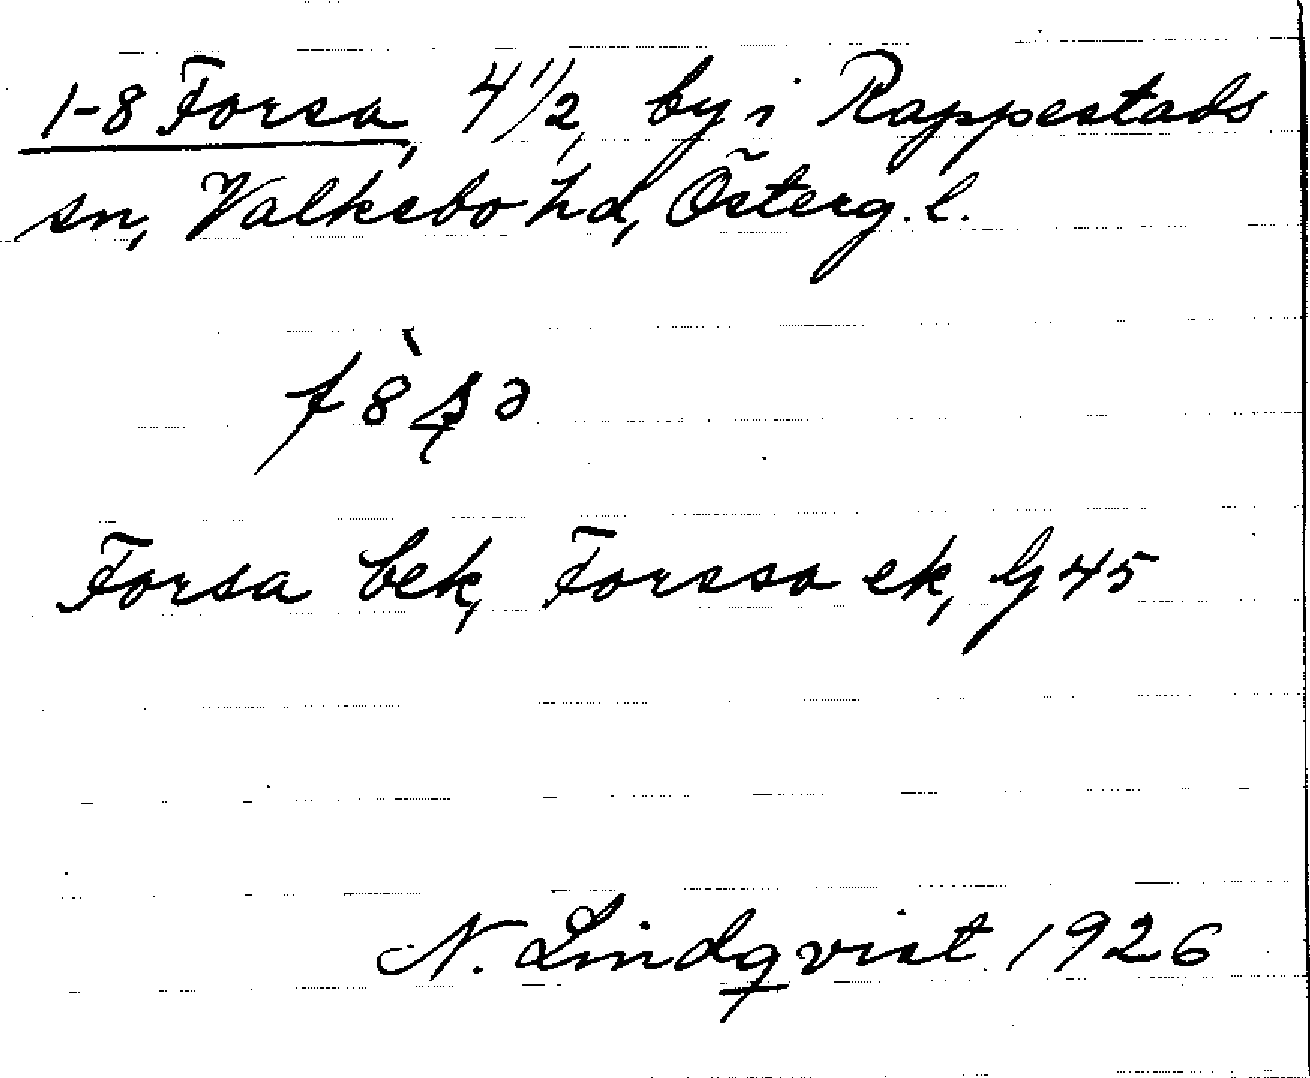 1-8 Forsa, 4 1/2, by i Rappestads
sn, Valkebo hd, Österg. l.
Forsa bek, Forssa ek, G 45
N. Lindqvist 1926